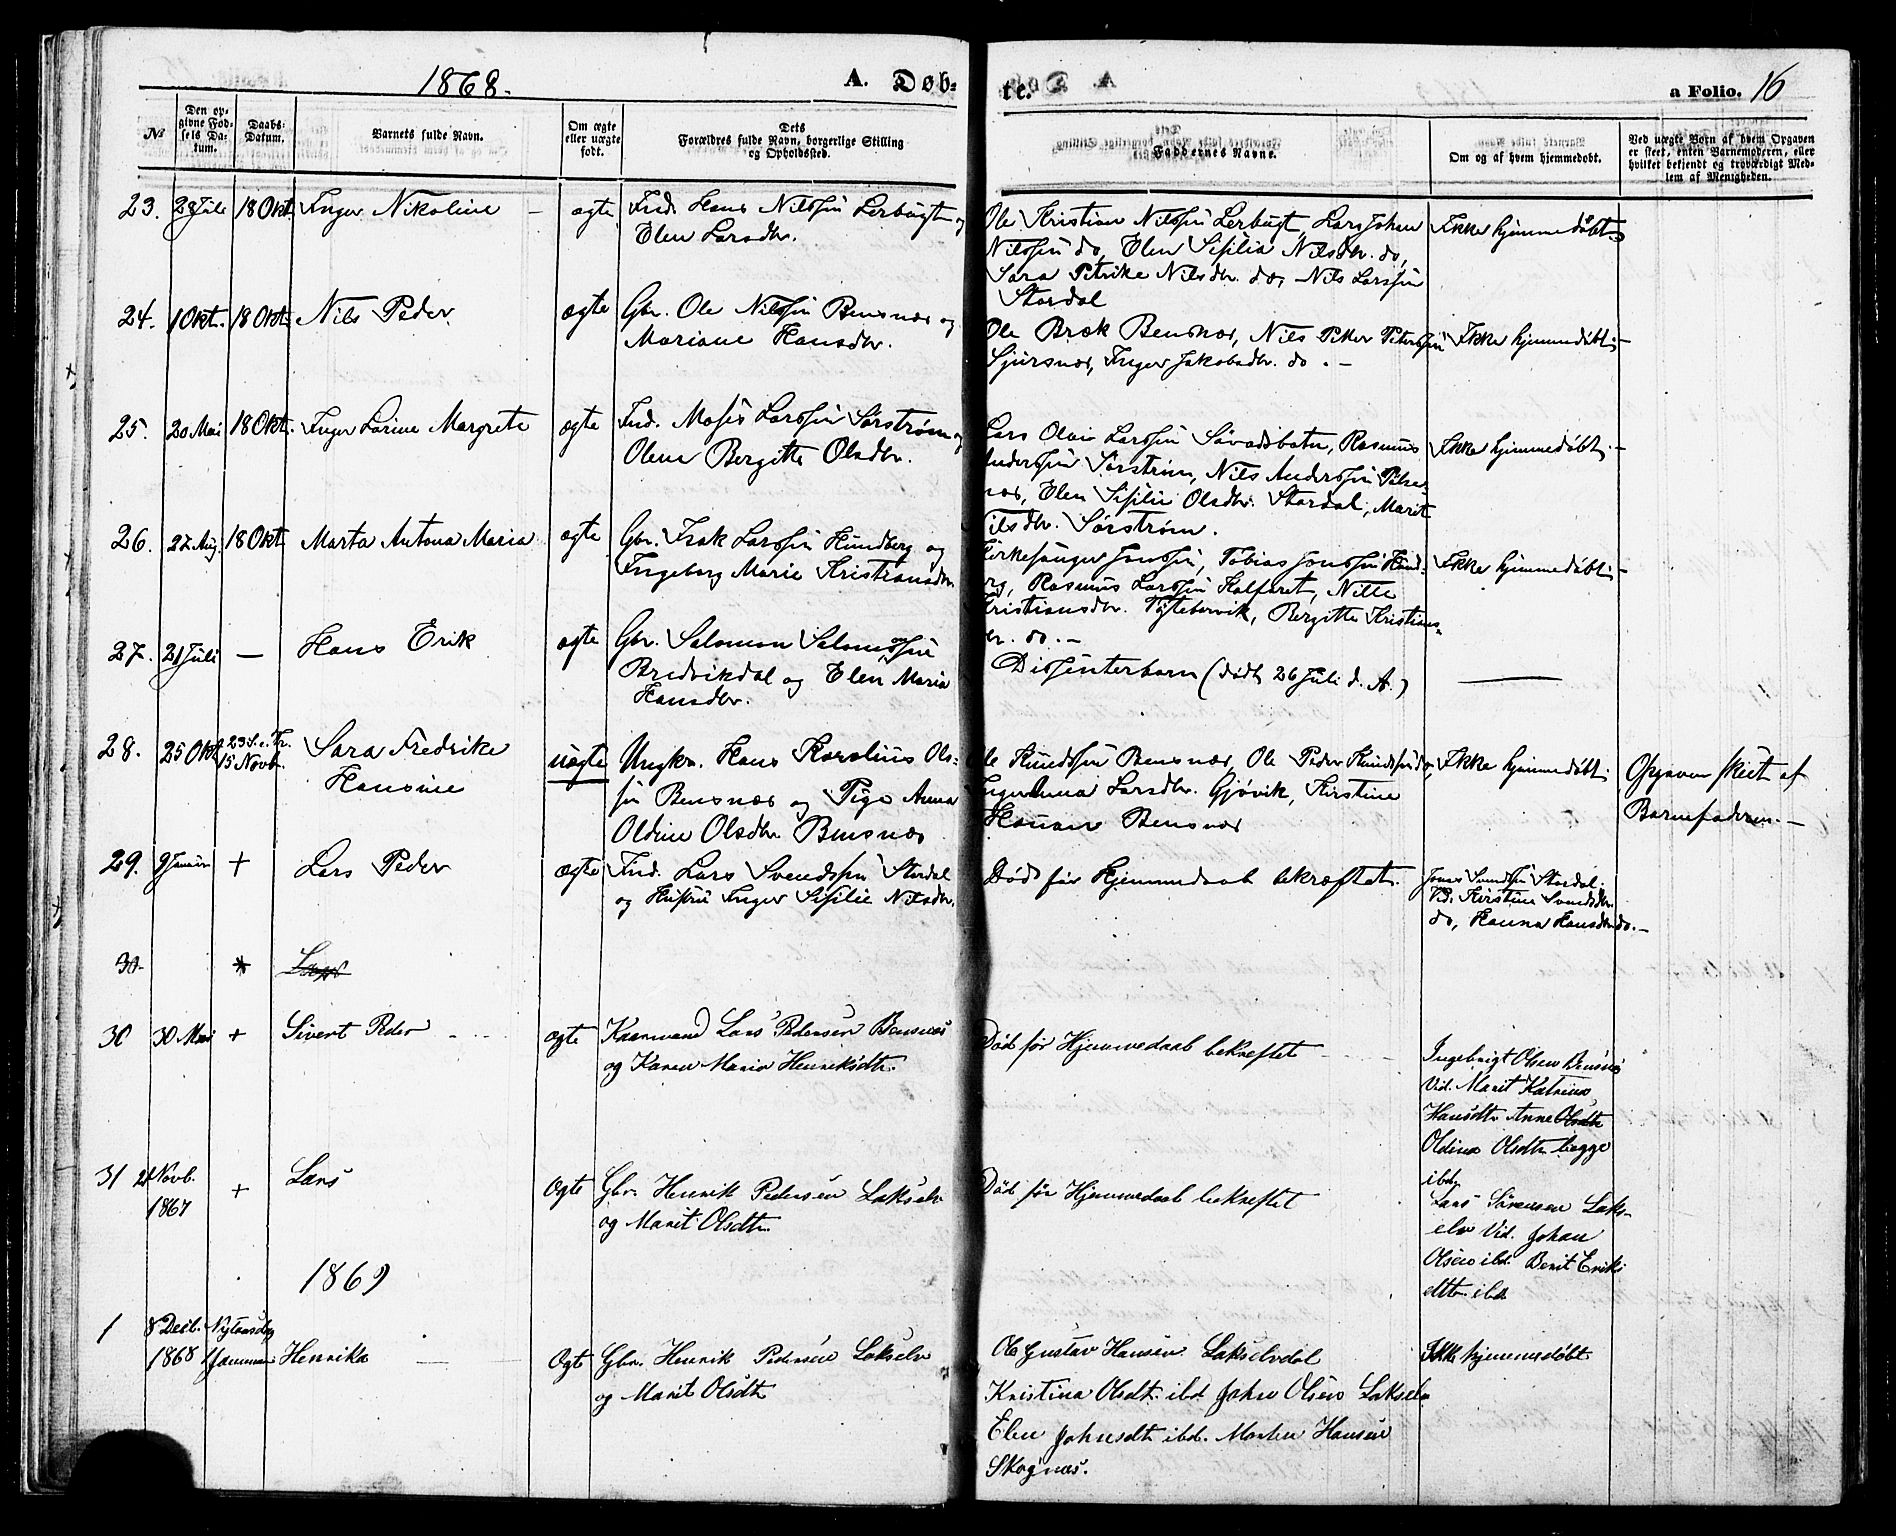 1868.
A. Døb=
te.
a Folio. 16
№
Den op=
givne Fød=
sels Da=
tum.
Daabs=
Datum.
Barnets fulde Navn.
Om ægte
eller uægte
født.
Dets
Forældres fulde Navn, borgerlige Stilling
og Opholdssted.
Faddernes Navne.
Om og af hvem hjemmedøbt.
Ved uægte Børn af hvem Opgaven
er skeet, enten Barnemoderen, eller
hvilket bekjendt og troværdigt Med=
lem af Menigheden.
23. 28 Juli 18 Okt. Inger Nikoline ægte Ind. Hans Nilssen Lerbugt og
Elen Larsdtr.
Ole Kristian Nilssen Lerbugt, Lars Johan
Nilssen do, Elen Sisilia Nilsdtr. do,
Sara Petrike Nilsdtr. do, Nils Larssen
Stordal
Ikke hjemmedøbt
24. 1 Okt. 18 Okt. Nils Peder ægte Gbr. Ole Nilssen Bensnæs og
Mariane Hansdtr.
Ole Bræk Bensnæs, Nils Petter Peterssen
Sjursnæs, Inger Jakobsdtr. do. -
Ikke hjemmedøbt -
25. 20 Mai 18 Okt. Inger Larine Margrete ægte Ind. Moses Larssen Sørstrøm og
Olene Bergitte Olsdtr.
Lars Olai Larssen Sørvadsbotn, Rasmus
Anderssen Sørstrøm, Nils Anderssen
næs, Elen Sisilie Olsdtr. Stordal, Marit
Nilsdtr. Sørstrøm.
Ikke hjemmedøbt. -
26. 27 Aug. 18 Okt. Marta Antona Maria ægte Gbr. Isak Larssen Hundberg og
Ingeborg Marie Kristiansdtr
Kirkesanger Jonssen, Tobias Jonssen Hund=
erg, Rasmus Larssen Kalfaret, Nille
Kristiansdtr. Tyttebærvik, Bergitte Kristians=
dtr. do. -
Ikke hjemmedøbt. -
27. 21 Juli — Hans Erik ægte Gbr. Salomon Salomonssen
Bredvikdal og Elen Maria
Hansdtr.
Dissenterbarn (dødt 26 Juli d. A.)
28. 25 Okt 23 S. e. Tr.
15 Novb. Sara Fredrike
Hansine
uægte Ungkr. Hans Karolius Ols=
sen Bensnæs og Pige Anna
Oldine Olsdtr. Bensnæs
Ole Knudssen Bensnæs, Ole Peder Knudssen do,
Inger Anna Larsdtr. Gjøvik, Kirstine
Hansen Bensnæs
Ikke hjemmedøbt
Opgaven skeet af
Barnefaderen. -
29. 9 Januar + Lars Peder ægte Ind. Lars Svendssen Stordal
og Hustru Inger Sisilie Nilsdtr.
Død før Hjemmedaab bekræftet.
Jonas Svendssen Stordal.
Vid. Kirstine Svendsdtr.
do, Hanna Hansdtr do. -
30 * Lars
30 30 Mai + Sivert Peder ægte Kaarmand Lars Pedersen Bensnæs
og Karen Maria Henriksdtr.
Død før Hjemmedaab bekreftet
Ingebrigt Olsen Bensnæs
Vid. Marit Katrina
Hansdtr Anne Olsdtr
Oldina Olsdtr begge
ibd.
31 21 Novb.
1867 + Lars Ægte Gbr. Henrik Pedersen Lakselv
og Marit Olsdtr.
Død før Hjemmedaab bekreftet
Lars Sørensen Laks-
elv Vid. Johan
Olsen ibd Berit Eriks
dttr. ibd
1869
1 8 Decb. Nytaarsdag
1868 1 Januar Henrika Ægte Gbr. Henrik Pedersen Lakselv
og Marit Olsdtr
Ole Gustav Hansen Lakselvdal
Kristina Olsdt. ibd Johan Olsen Lakselv
Elen Johnsdtr ibd. Morten Hansen
Skognæs.
Ikke hjemmedøbt